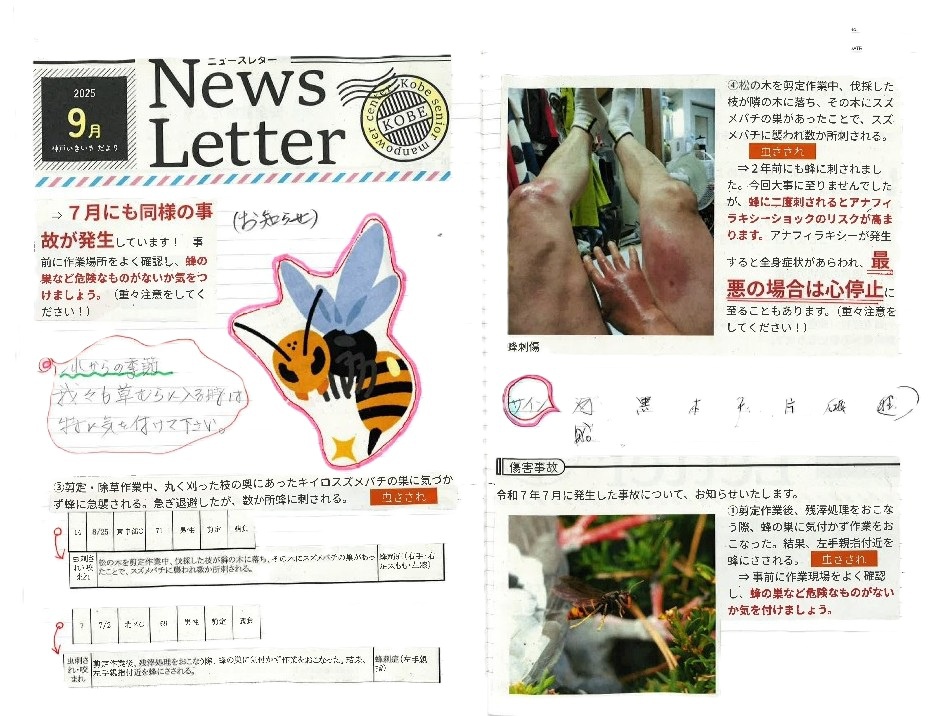 ニュースレター
News
Letter
2025
9月
神戸いきいきだより
Kobe senior
manpower center
KOBE
⇒７月にも同様の事
故が発生しています！　事
前に作業場所をよく確認し、蜂の
巣など危険なものがないか気をつ
けましょう。（重々注意をしてく
ださい！）
(お知らせ)
これからの季節
我々も草むらに入る時は
特に気を付けて下さい。
③剪定・除草作業中、丸く刈った枝の奥にあったキイロスズメバチの巣に気づか
ず蜂に急襲される。急ぎ退避したが、数か所蜂に刺される。　虫さされ
8/25 71 男性 剪定
虫刺さ 松の木を剪定作業中、伐採した枝が隣の木に落ち、その木にスズメバチの巣があっ
れ・咬 たことで、スズメバチに襲われ数か所刺される。
まれ
7 7/2 69 男性 剪定
虫刺さ 剪定作業後、残滓処理をおこなう際、蜂の巣に気付かず作業をおこなった。結果、 蜂刺症（左手親
れ・咬 左手親指付近を蜂にさされる。 指）
まれ
④松の木を剪定作業中、伐採した
枝が隣の木に落ち、その木にスズ
メバチの巣があったことで、スズ
メバチに襲われ数か所刺される。
虫さされ
⇒２年前にも蜂に刺されまし
た。今回大事に至りませんでした
が、蜂に二度刺されるとアナフィ
ラキシーショックのリスクが高ま
ります。アナフィラキシーが発生
すると全身症状があらわれ、最
悪の場合は心停止に
至ることもあります。（重々注意を
してください！）
蜂刺傷
サイン 黒 木 片
傷害事故
令和７年７月に発生した事故について、お知らせいたします。
①剪定作業後、残滓処理をおこな
う際、蜂の巣に気付かず作業をお
こなった。結果、左手親指付近を
蜂にさされる。　虫さされ
⇒事前に作業現場をよく確認
し、蜂の巣など危険なものがない
か気を付けましょう。